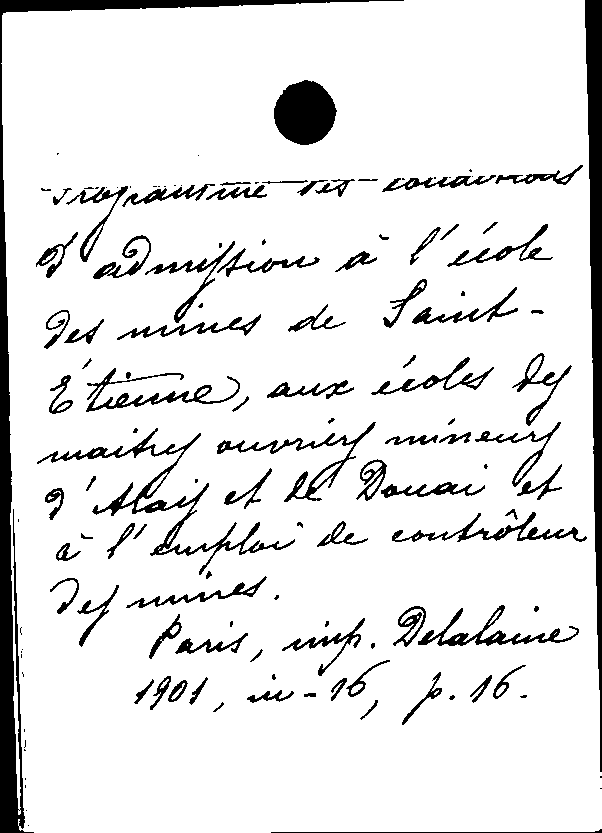 Programme des conditions
d'admission à l'école
des mines de Saint-
Étienne, aux écoles des
maitres ouvriers mineurs
d'Alais et de Douai et
à l'emploi de contrôleur
des mines.
Paris, imp. Delalaine
1901, in-16, p. 16.